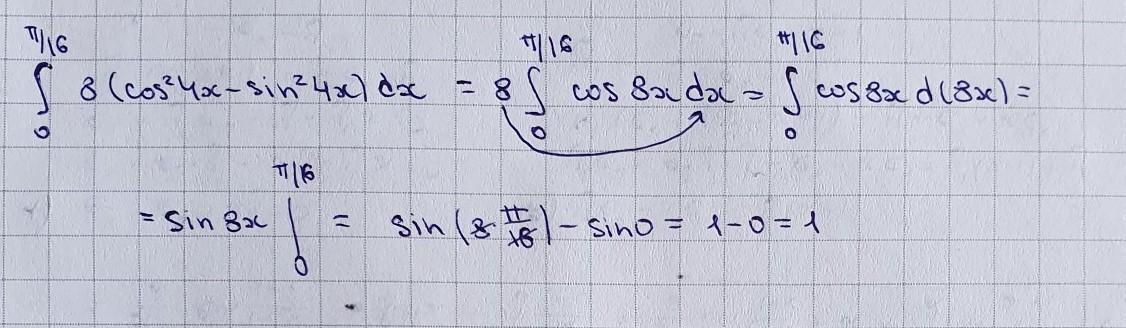 ∫₀^(π/16) 8(cos²4x-sin²4x)dx = 8∫₀^(π/16) cos 8x dx = ∫₀^(π/16) cos8x d(8x) =
= sin 8x |₀^(π/16) = sin(8·π/16) - sin0 = 1-0 = 1